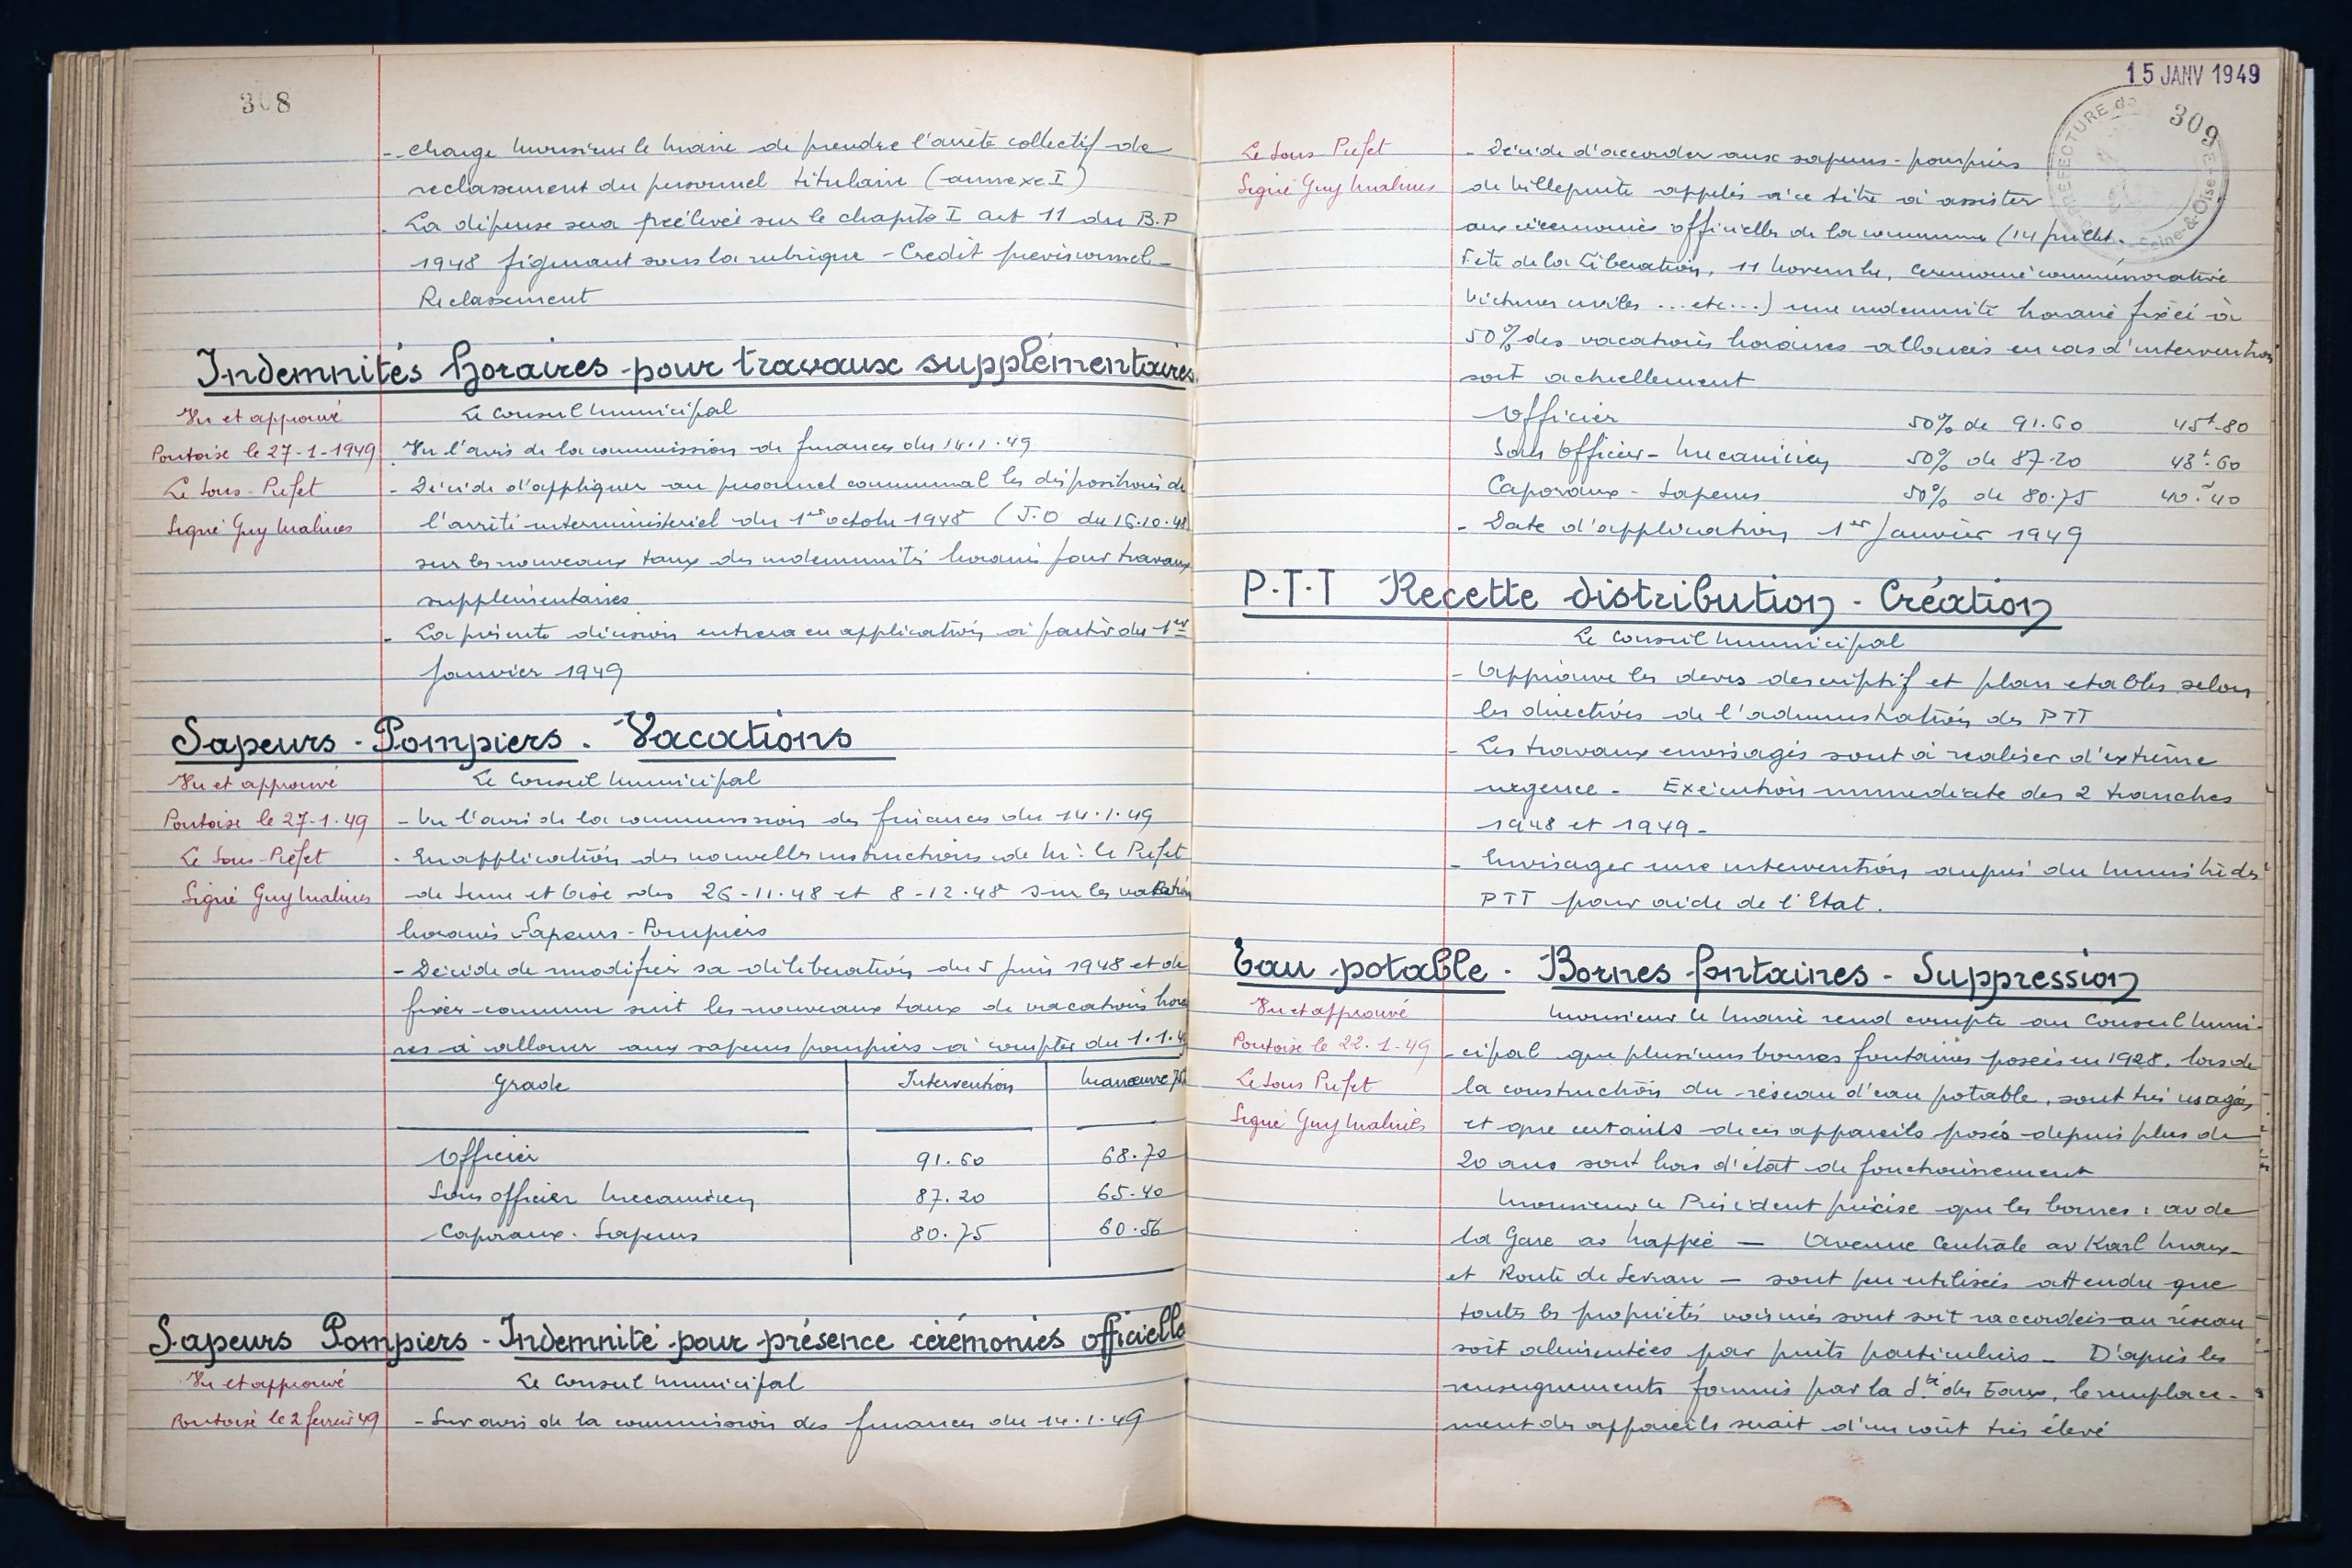 308
- charge Monsieur le Maire de prendre l'arrêté collectif de
reclassement du personnel titulaire (annexe I)
. La dépense sera prélevée sur le chapitre I art 11 du B.P
1948 figurant sous la rubrique - Credit previsionnel -
Reclassement
Indemnités horaires pour travaux supplémentaires.
Vu et approuvé
Pontoise le 27-1-1949
Le Sous-Prefet
Signé Guy Malines
Le Conseil Municipal
. Vu l'avis de la commission de finances du 14.1.49
- Décide d'appliquer au personnel communal les dispositions de
l'arrêté interministeriel du 1er octobre 1948 (J.O du 16.10.48
sur les nouveaux taux des indemnités horaires pour travaux
supplémentaires
- La présente décision entrera en application à partir du 1er
Janvier 1949
Sapeurs-Pompiers. Vacations
Vu et approuvé
Pontoise le 27-1.49
Le Sous-Préfet
Signé Guy Malines
Le Conseil Municipal
- Vu l'avis de la commission des finances du 14.1.49
. En application des nouvelles instructions de Mr. le Préfet
de Seine et Oise des 26-11.48 et 8-12.48 sur les vacation
horaires Sapeurs-Pompiers
- Décide de modifier sa délibération du 5 Juin 1948 et de
fixer comme suit les nouveaux taux de vacations horai
res à allouer aux sapeurs pompiers à compter du 1.1.4
Grade Intervention Manœuvre 75
Officier 91.60 68.70
Sous officier Mecanicien 87.20 65.40
Caporaux. Sapeurs 80.75 60.56
Sapeurs Pompiers - Indemnité pour présence cérémonies officielle
Vu et approuvé
Pontoise le 2 fevrier 49
Le Conseil Municipal
- Sur avis de la commission des finances du 14.1.49
15 JANV 1949
309
Le Sous Prefet
Signé Guy Malines
- Décide d'accorder aux sapeurs-pompiers
de Villepinte appelés à ce titre à assister
aux cérémonies officielles de la commune (14 Juillet.
Fête de la Libération, 11 Novembre, Cérémonie commémorative
Victimes civiles ... etc...) une indemnité horaire fixée à
50% des vacations horaires allouées en cas d'intervention
soit actuellement
Officier 50% de 91.60 45f.80
Sous Officier-Mecanicien 50% de 87.20 43f.60
Caporaux - Sapeurs 50% de 80.75 40.40
- Date d'application 1er Janvier 1949
P.T.T Recette distribution - Création
Le Conseil Municipal
- Approuve les devis descriptif et plan etablis selon
les directives de l'administration des PTT
- Les travaux envisagés sont à realiser d'extrême
urgence - Exécution immediate des 2 tranches
1948 et 1949-
- Envisager une intervention auprès du Ministre des
PTT pour aide de l'Etat.
Eau potable - Bornes fontaines - Suppression
Vu et approuvé
Pontoise le 22.1-49
Le Sous Prefet
Signé Guy Malines
Monsieur le Maire rend compte au Conseil Muni-
-cipal que plusieurs bornes fontaines posées en 1928, lors de
la construction du réseau d'eau potable, sont très usagés
et que certains de ces appareils posés depuis plus de
20 ans sont hors d'état de fonctionnement
Monsieur le Président précise que les bornes : av de
la Gare av Nappée — Avenue Centrale av Karl Marx-
et Route de Sevran — sont peu utilisées attendu que
toutes les propriétés voisines sont soit raccordées au réseau
soit alimentées par puits particuliers - D'après les
renseignements fournis par la Sté des Eaux, le remplace-
ment des appareils serait d'un coût très élevé